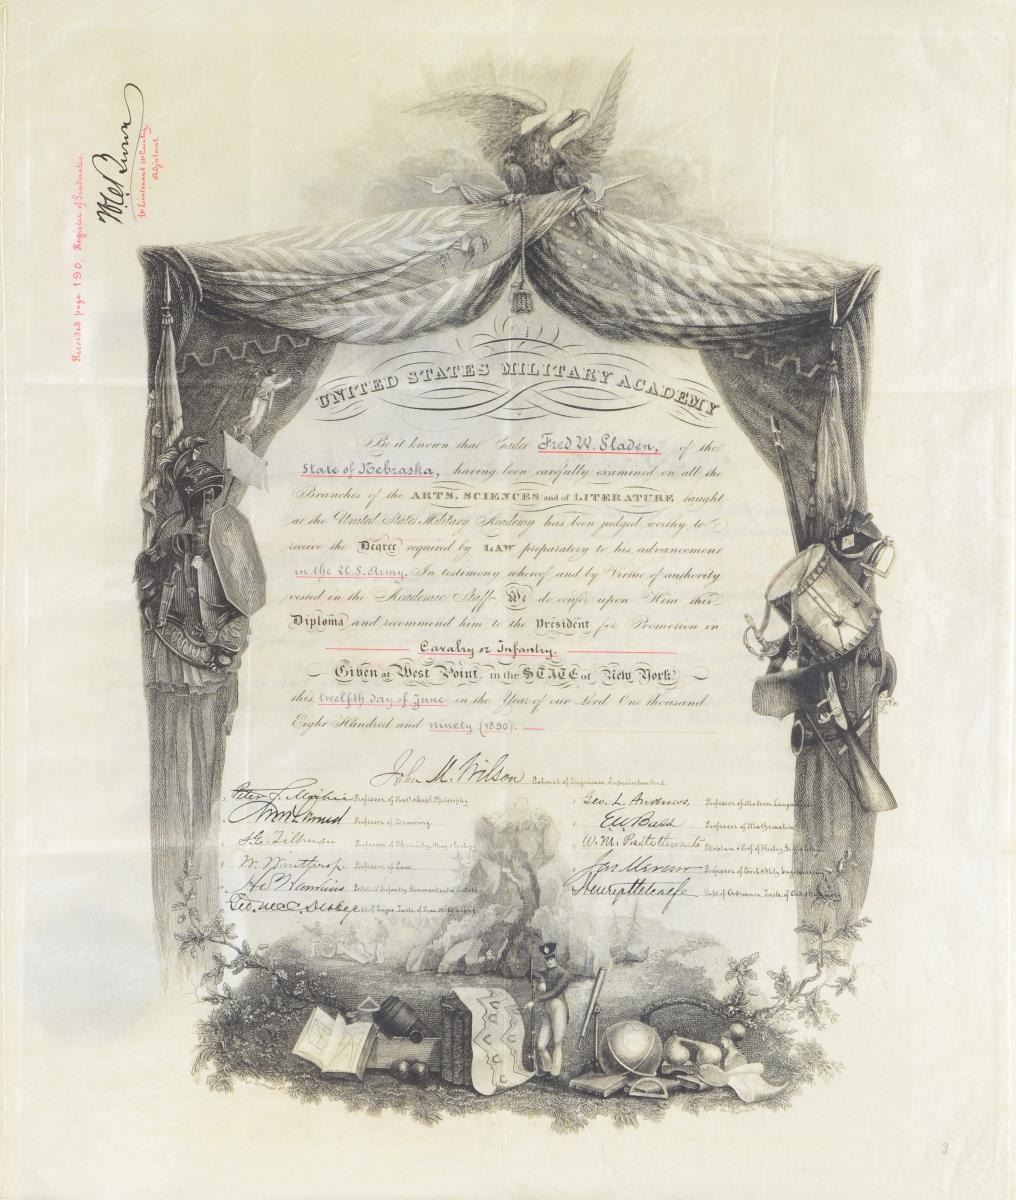 Recorded page 190, Register of Graduates.
1st Lieutenant 1st Cavalry,
Adjutant.
UNITED STATES MILITARY ACADEMY
Be it known that Cadet Fred W. Sladen, of the
State of Nebraska, having been carefully examined on all the
Branches of the ARTS, SCIENCES and of LITERATURE taught
at the United States Military Academy has been judged worthy to
receive the Degree required by LAW preparatory to his advancement
in the U.S. Army. In testimony whereof and by Virtue of authority
vested in the Academic Staff We do confer upon Him this
Diploma and recommend him to the President for Promotion in
Cavalry or Infantry.
Given at West Point, in the STATE of New York
this twelfth day of June in the Year of our Lord One thousand
Eight Hundred and ninety (1890).
John M. Wilson Colonel of Engineers Superintendent
Peter S. Michie Professor of Nat. & Expl. Philosophy.
Professor of Drawing.
S.E. Tillman Professor of Chemistry, Min. & Geology
W. Winthrop Professor of Law.
H.S. Hawkins
Geo. McC. Derby
Geo. L. Andrews, Professor of Modern Languages
E.W. Bass Professor of Mathematics
W.M. Postlethwaite Chaplain & Prof. of History
Jas Mercur Professor of Civil & Mily. Engineering
Henry Metcalfe Capt. of Ordnance
3